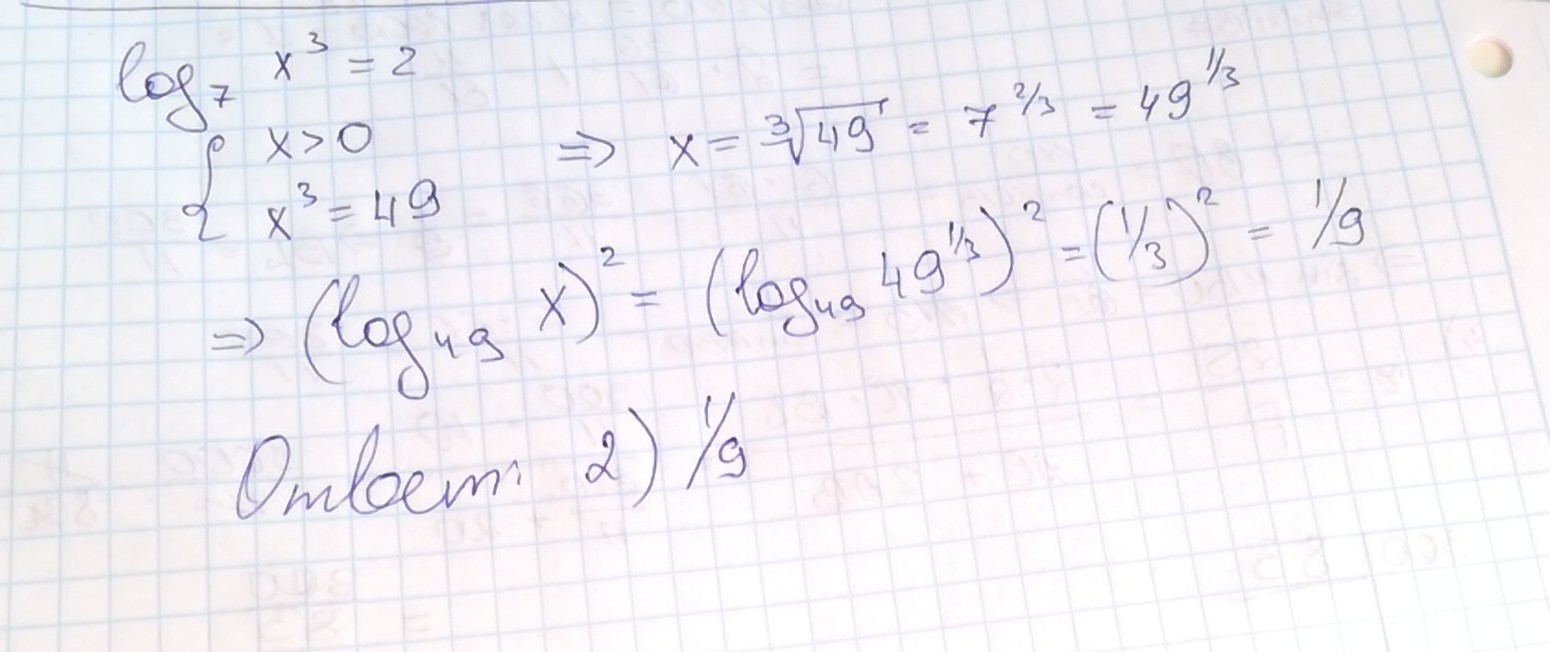 log₇ x³ = 2
{ x > 0
x³ = 49 ⇒ x = ∛49 = 7^(2/3) = 49^(1/3)
⇒ (log₄₉ x)² = (log₄₉ 49^(1/3))² = (1/3)² = 1/9
Ответ: 2) 1/9